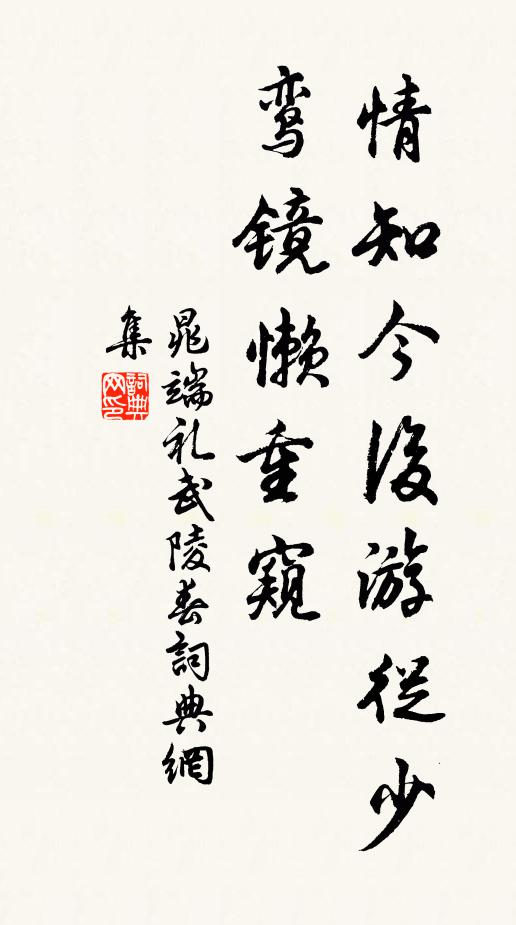 情知今後游從少
鸾镜懒重窺
晁端礼武陵春詞典網
集
詞典网印